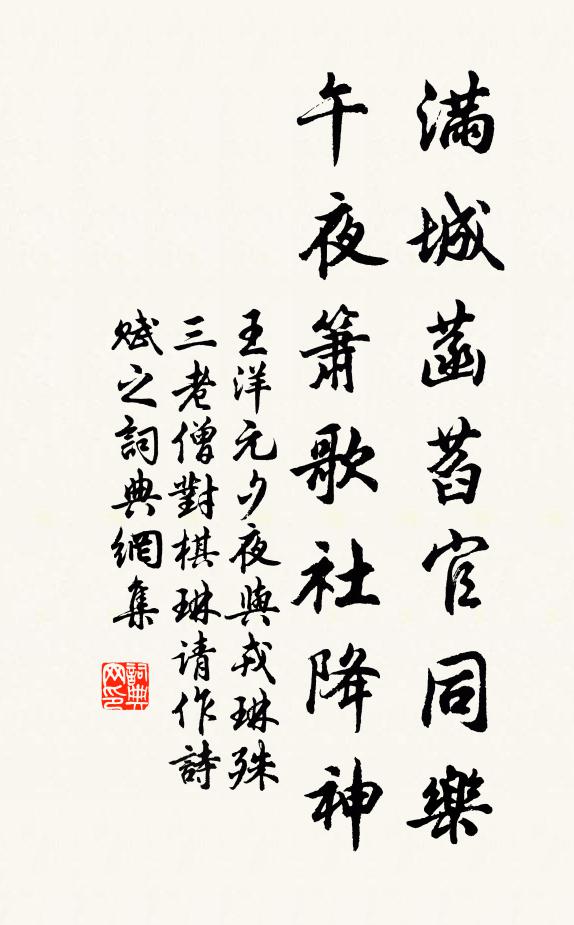 滿城菡萏官同樂
午夜簫歌社降神
王洋元夕夜與戎琳殊
三老僧對棋琳請作詩
賦之詞典網集
詞典网印